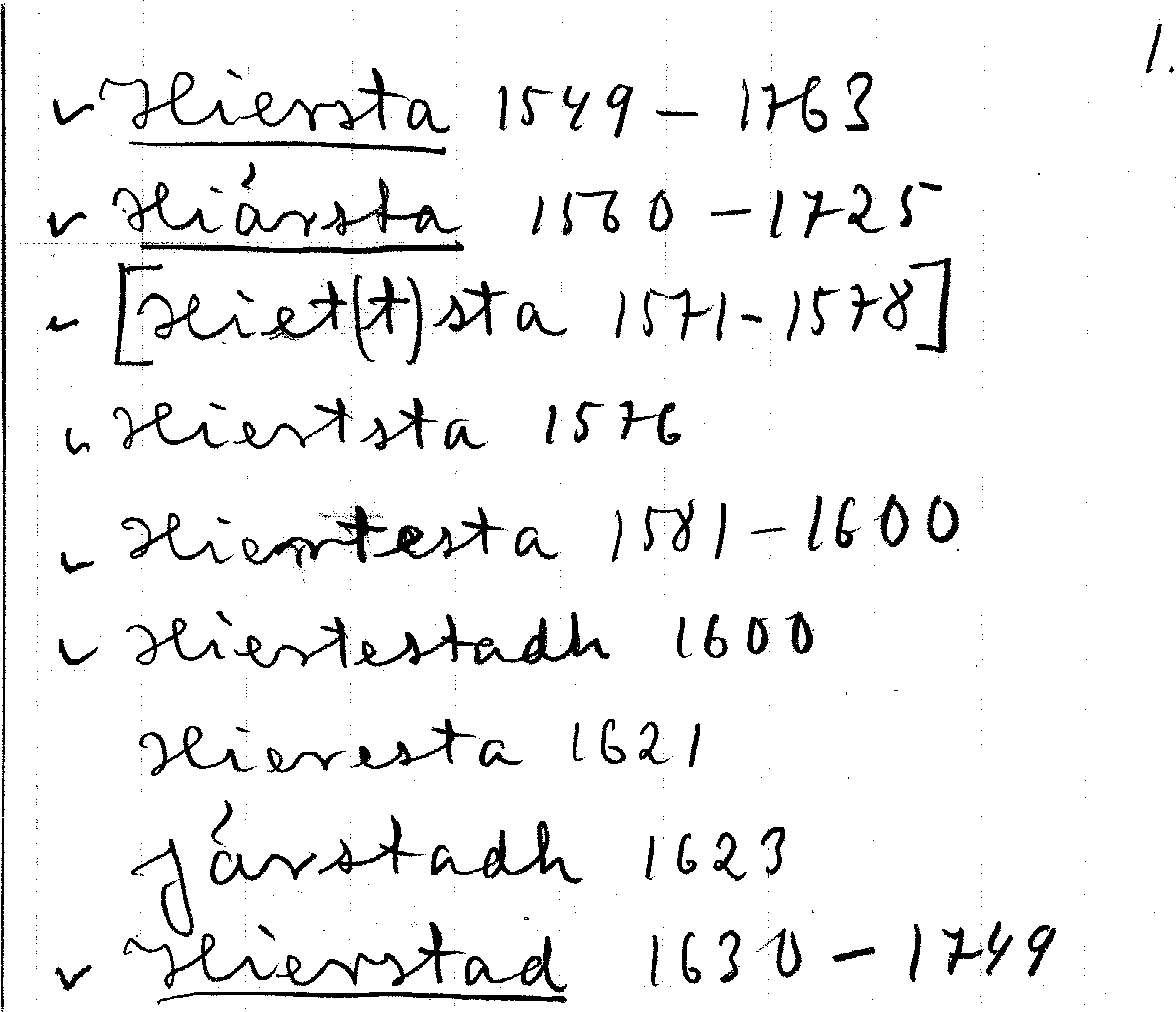 1.
✓ Hiersta 1549 – 1763
✓ Hiársta 1560 – 1725
✓ [Hiet(t)sta 1571 - 1578]
✓ Hiertsta 1576
✓ Hiertesta 1581 – 1600
✓ Hiertestadh 1600
Hieresta 1621
Járstadh 1623
✓ Hierstad 1630 – 1749